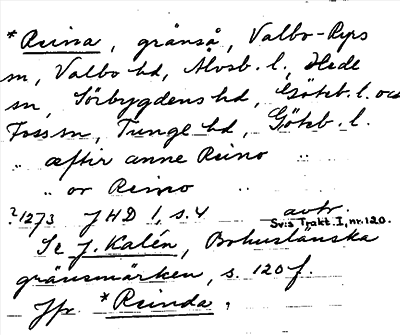 *Reina, gränså, Valbo-Ryrs
sn, Valbo hd, Älvsb. l., Hede
sn, Sörbygdens hd, Göteb. l. och
Foss sn, Tunge hd, Göteb. l.
" æftir anne Reino "
" or Reino "
?1273 JHD 1, s. 4 avtr.
Sv:s Trakt. I, nr. 120.
Se J. Kalén, Bohuslänska
gränsmärken, s. 120 f.
Jfr *Reinda.